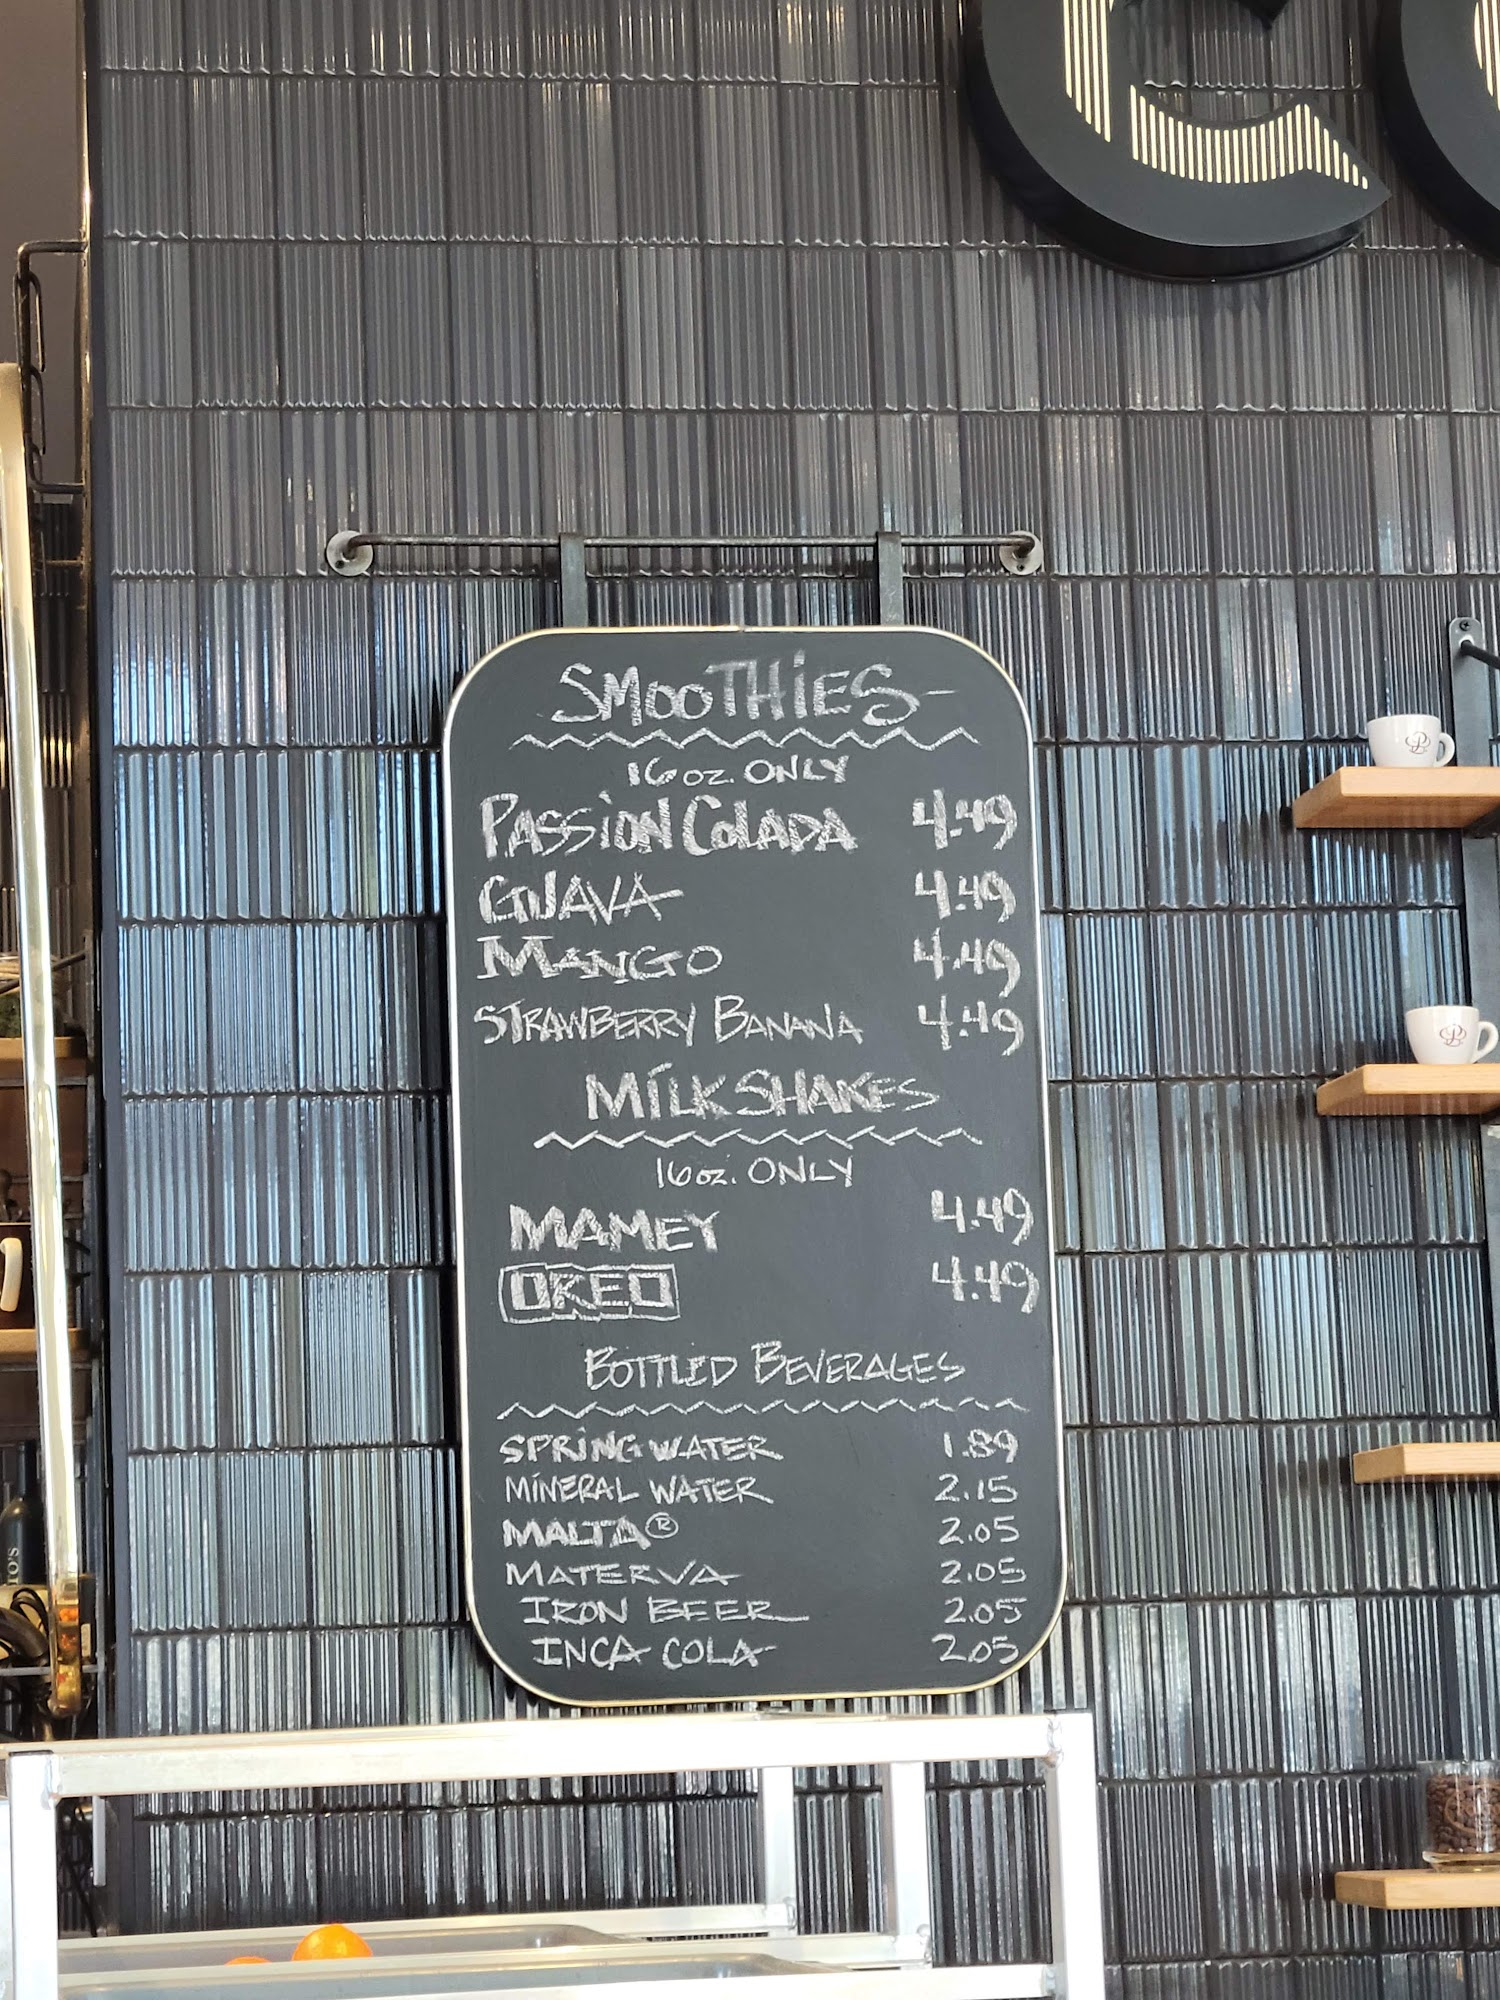 CO
SMOOTHIES
16 oz. ONLY
PASSION COLADA 4.49
GUAVA 4.49
MANGO 4.49
STRAWBERRY BANANA 4.49
MILKSHAKES
16 oz. ONLY
MAMEY 4.49
OREO 4.49
BOTTLED BEVERAGES
SPRING WATER 1.89
MINERAL WATER 2.15
MALTA® 2.05
MATERVA 2.05
IRON BEER 2.05
INCA COLA 2.05